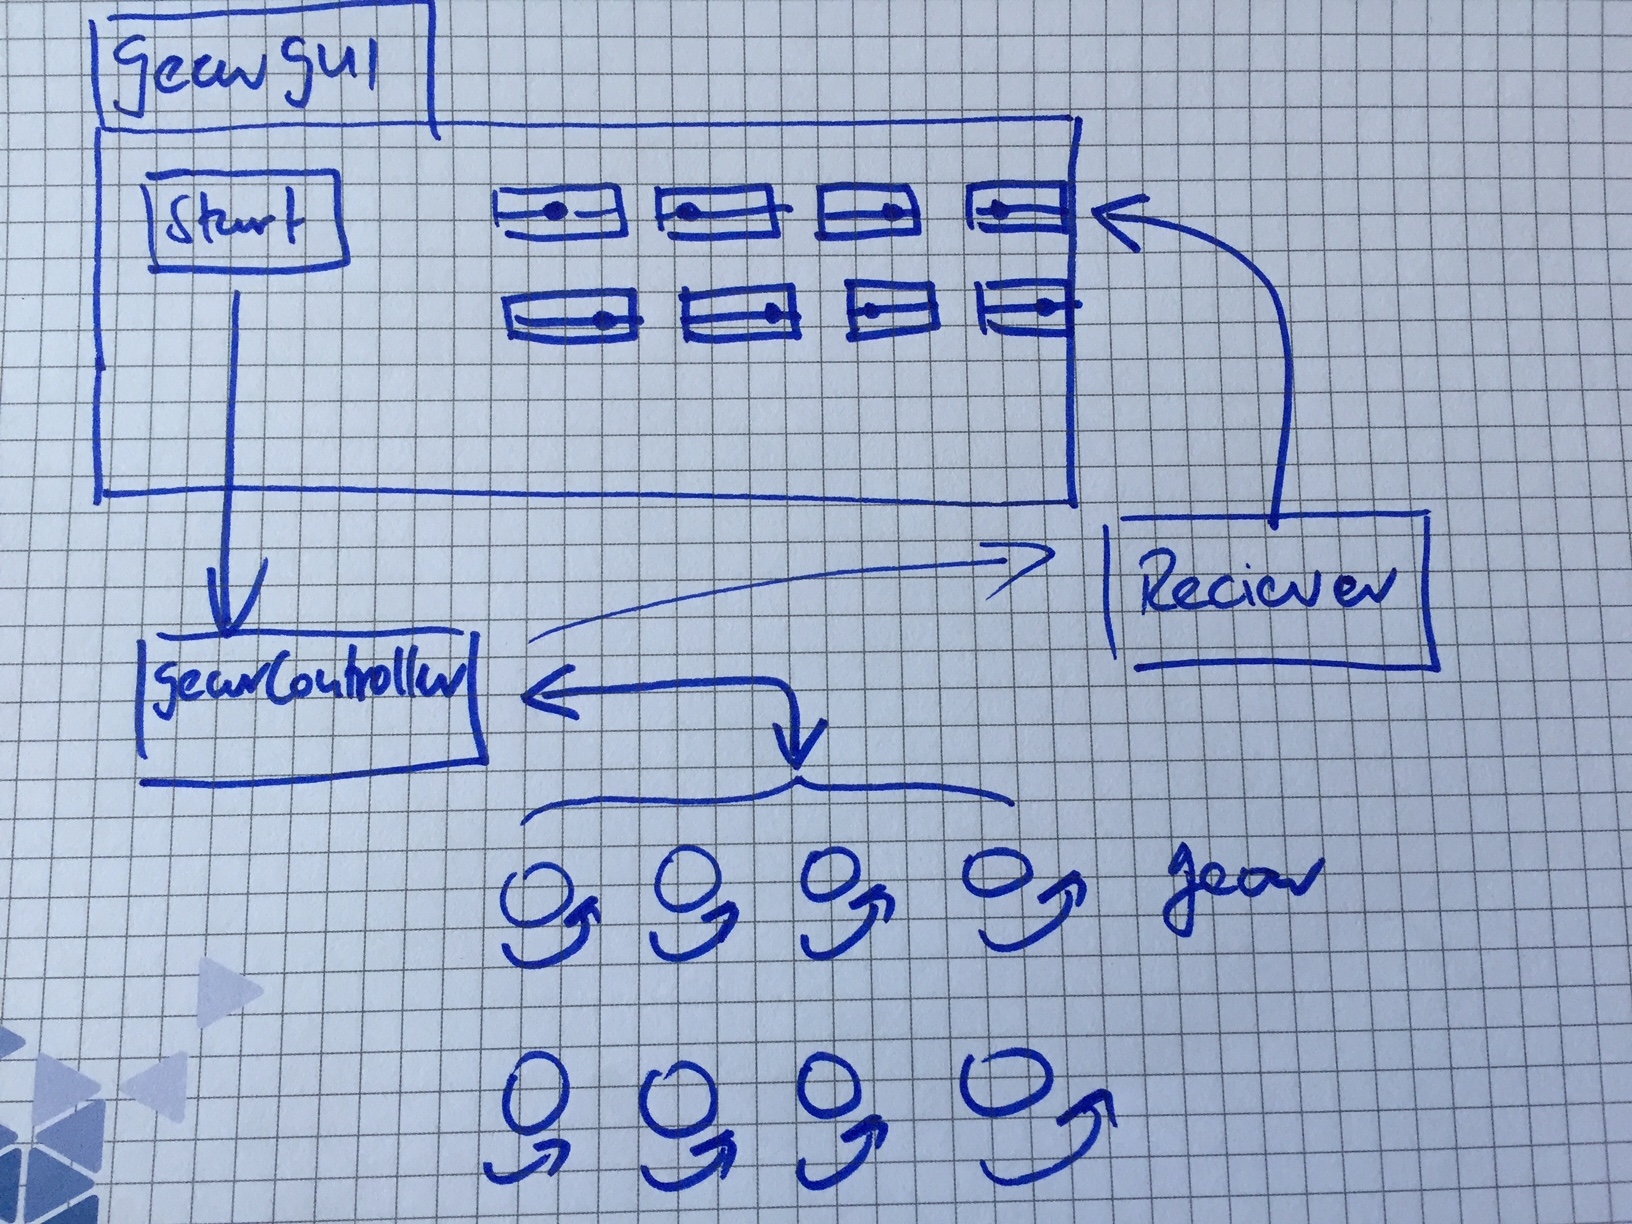 gearGUI
Start
Reciever
gearController
gear